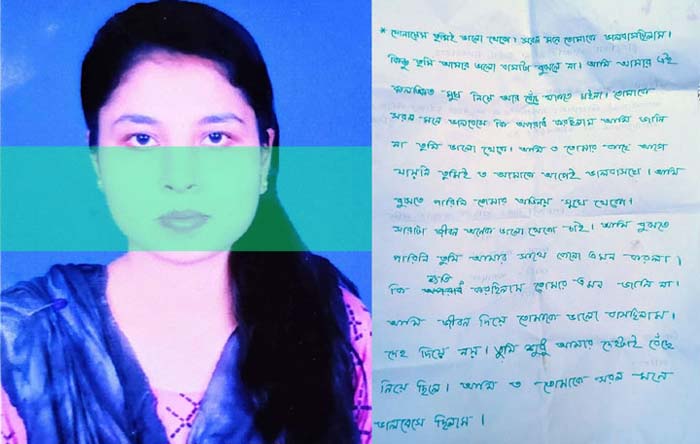 * সোনামেস তুমিই ভালো থেকো। সরল মনে তোমাকে ভালবাসছিলাম।
কিন্তু তুমি আমার ভালো বাসাটা বুঝলে না। আমি আমার এই
কলঙ্কিত মুখ নিয়ে আর বেঁচে থাকতে চাইনা। তোমাকে
সরল মনে ভালবেসে কি অপরাধ করছিলাম আমি জানি
না তুমি ভালো থেকো। আমি ত তোমার কাছে আগে
যায়নি তুমিই ত আমাকে আগেই ভালবাসছো। আমি
বুঝতে পারিনি তোমার অভিনয় সুখে থেকো।
সারাটা জীবন অনেক ভালো থেকো চাই। আমি বুঝতে
পারিনি তুমি আমার সাথে কেনো এমন করলা।
কি ক্ষতি করছিলাম তোমার এমন জানি না।
আমি জীবন দিয়ে তোমাকে ভালো বাসছিলাম।
দেহ দিয়ে নয়। তুমি শুধু আমার দেহটাই বেঁছে
নিয়ে ছিলে। আমি ত তোমাকে সরল মনে
ভালবেসে ছিলাম।